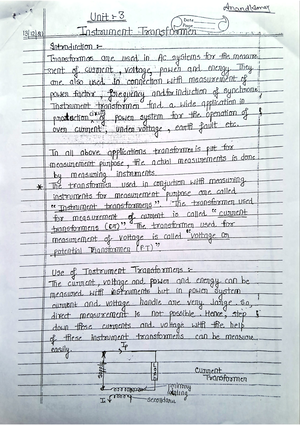 Anandkumar
Unit:-3
Date
Page
Instrument Transformer
Introduction :-
Transformer are used in AC systems for the measure
ment of current, voltage, power and energy. They
are also used in connection with measurement of
power factor, frequency and for induction of synchronis
Instrument transformer find a wide application in
protection circuit of power system for the operation of
over current, under voltage, earth fault etc.
In all above applications transformer is put for
measurement purpose, the actual measurements is done
by measuring instruments
* The transformer used in conjuction with measuring
instruments for measurement purpose are called
"Instrument transformers". The transformer used
for measurement of current is called "current
transformers (CT)". The transformer used for
measurement of voltage is called "voltage or
potential Transformer (P.T)".
Use of Instrument Transformers :-
The current, voltage and power and energy can be
measured with instruments but in power system
current and voltage handle are very large so,
direct measurement is not possible. Hence, step
down these currents and voltage with the help
of these instrument transformers can be measure
easily.
Supply
Ip
Current
Transformer
primary
winding
secondary